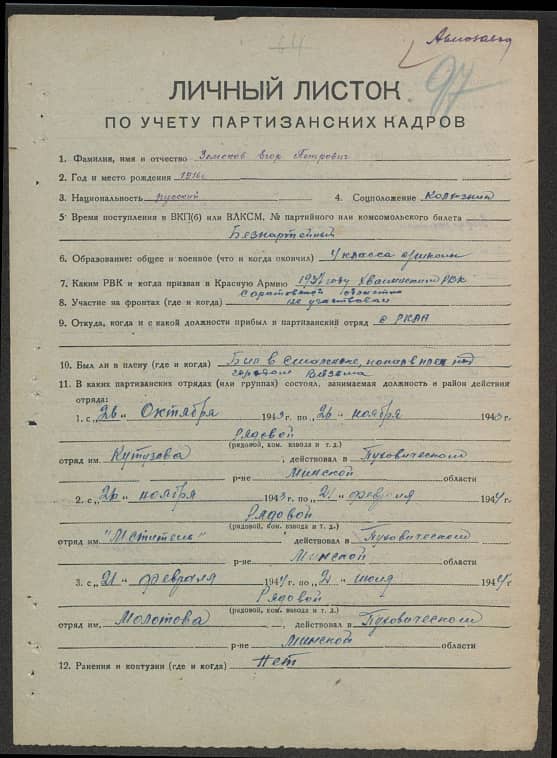 97
ЛИЧНЫЙ ЛИСТОК
ПО УЧЕТУ ПАРТИЗАНСКИХ КАДРОВ
1. Фамилия, имя и отчество Земсков Егор Петрович
2. Год и место рождения 1916г
3. Национальность русский 4. Соцположение колхозник
5. Время поступления в ВКП(б) или ВЛКСМ, № партийного или комсомольского билета
Безпартейный
6. Образование: общее и военное (что и когда окончил) 4 класса
7. Каким РВК и когда призван в Красную Армию 1937 году Хвалинским РВК
Саратовской области
8. Участие на фронтах (где и когда) не участвовал
9. Откуда, когда и с какой должности прибыл в партизанский отряд с РККА
10. Был ли в плену (где и когда) Был в Смоленске, попал в плен под
городом Вязьма
11. В каких партизанских отрядах (или группах) состоял, занимаемая должность и район действия
отряда:
1. с „26“ Октября 1943 г. по „26“ ноября 1943 г.
Рядовой
(рядовой, ком. взвода и т. д.)
отряд им. Кутузова, действовал в Пуховическом
р-не Минской области
2. с „26“ ноября 1943 г. по „21“ февраля 1944 г.
Рядовой
(рядовой, ком. взвода и т. д.)
отряд им. "Мститель" действовал в Пуховическом
р-не Минской области
3. с „21“ февраля 1944 г. по „2“ июля 1944 г.
Рядовой
(рядовой, ком. взвода и т. д.)
отряд им. Молотова, действовал в Пуховическом
р-не Минской области
12. Ранения и контузии (где и когда) Нет